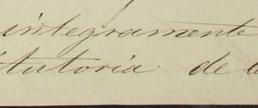 integramente
titutoria de l